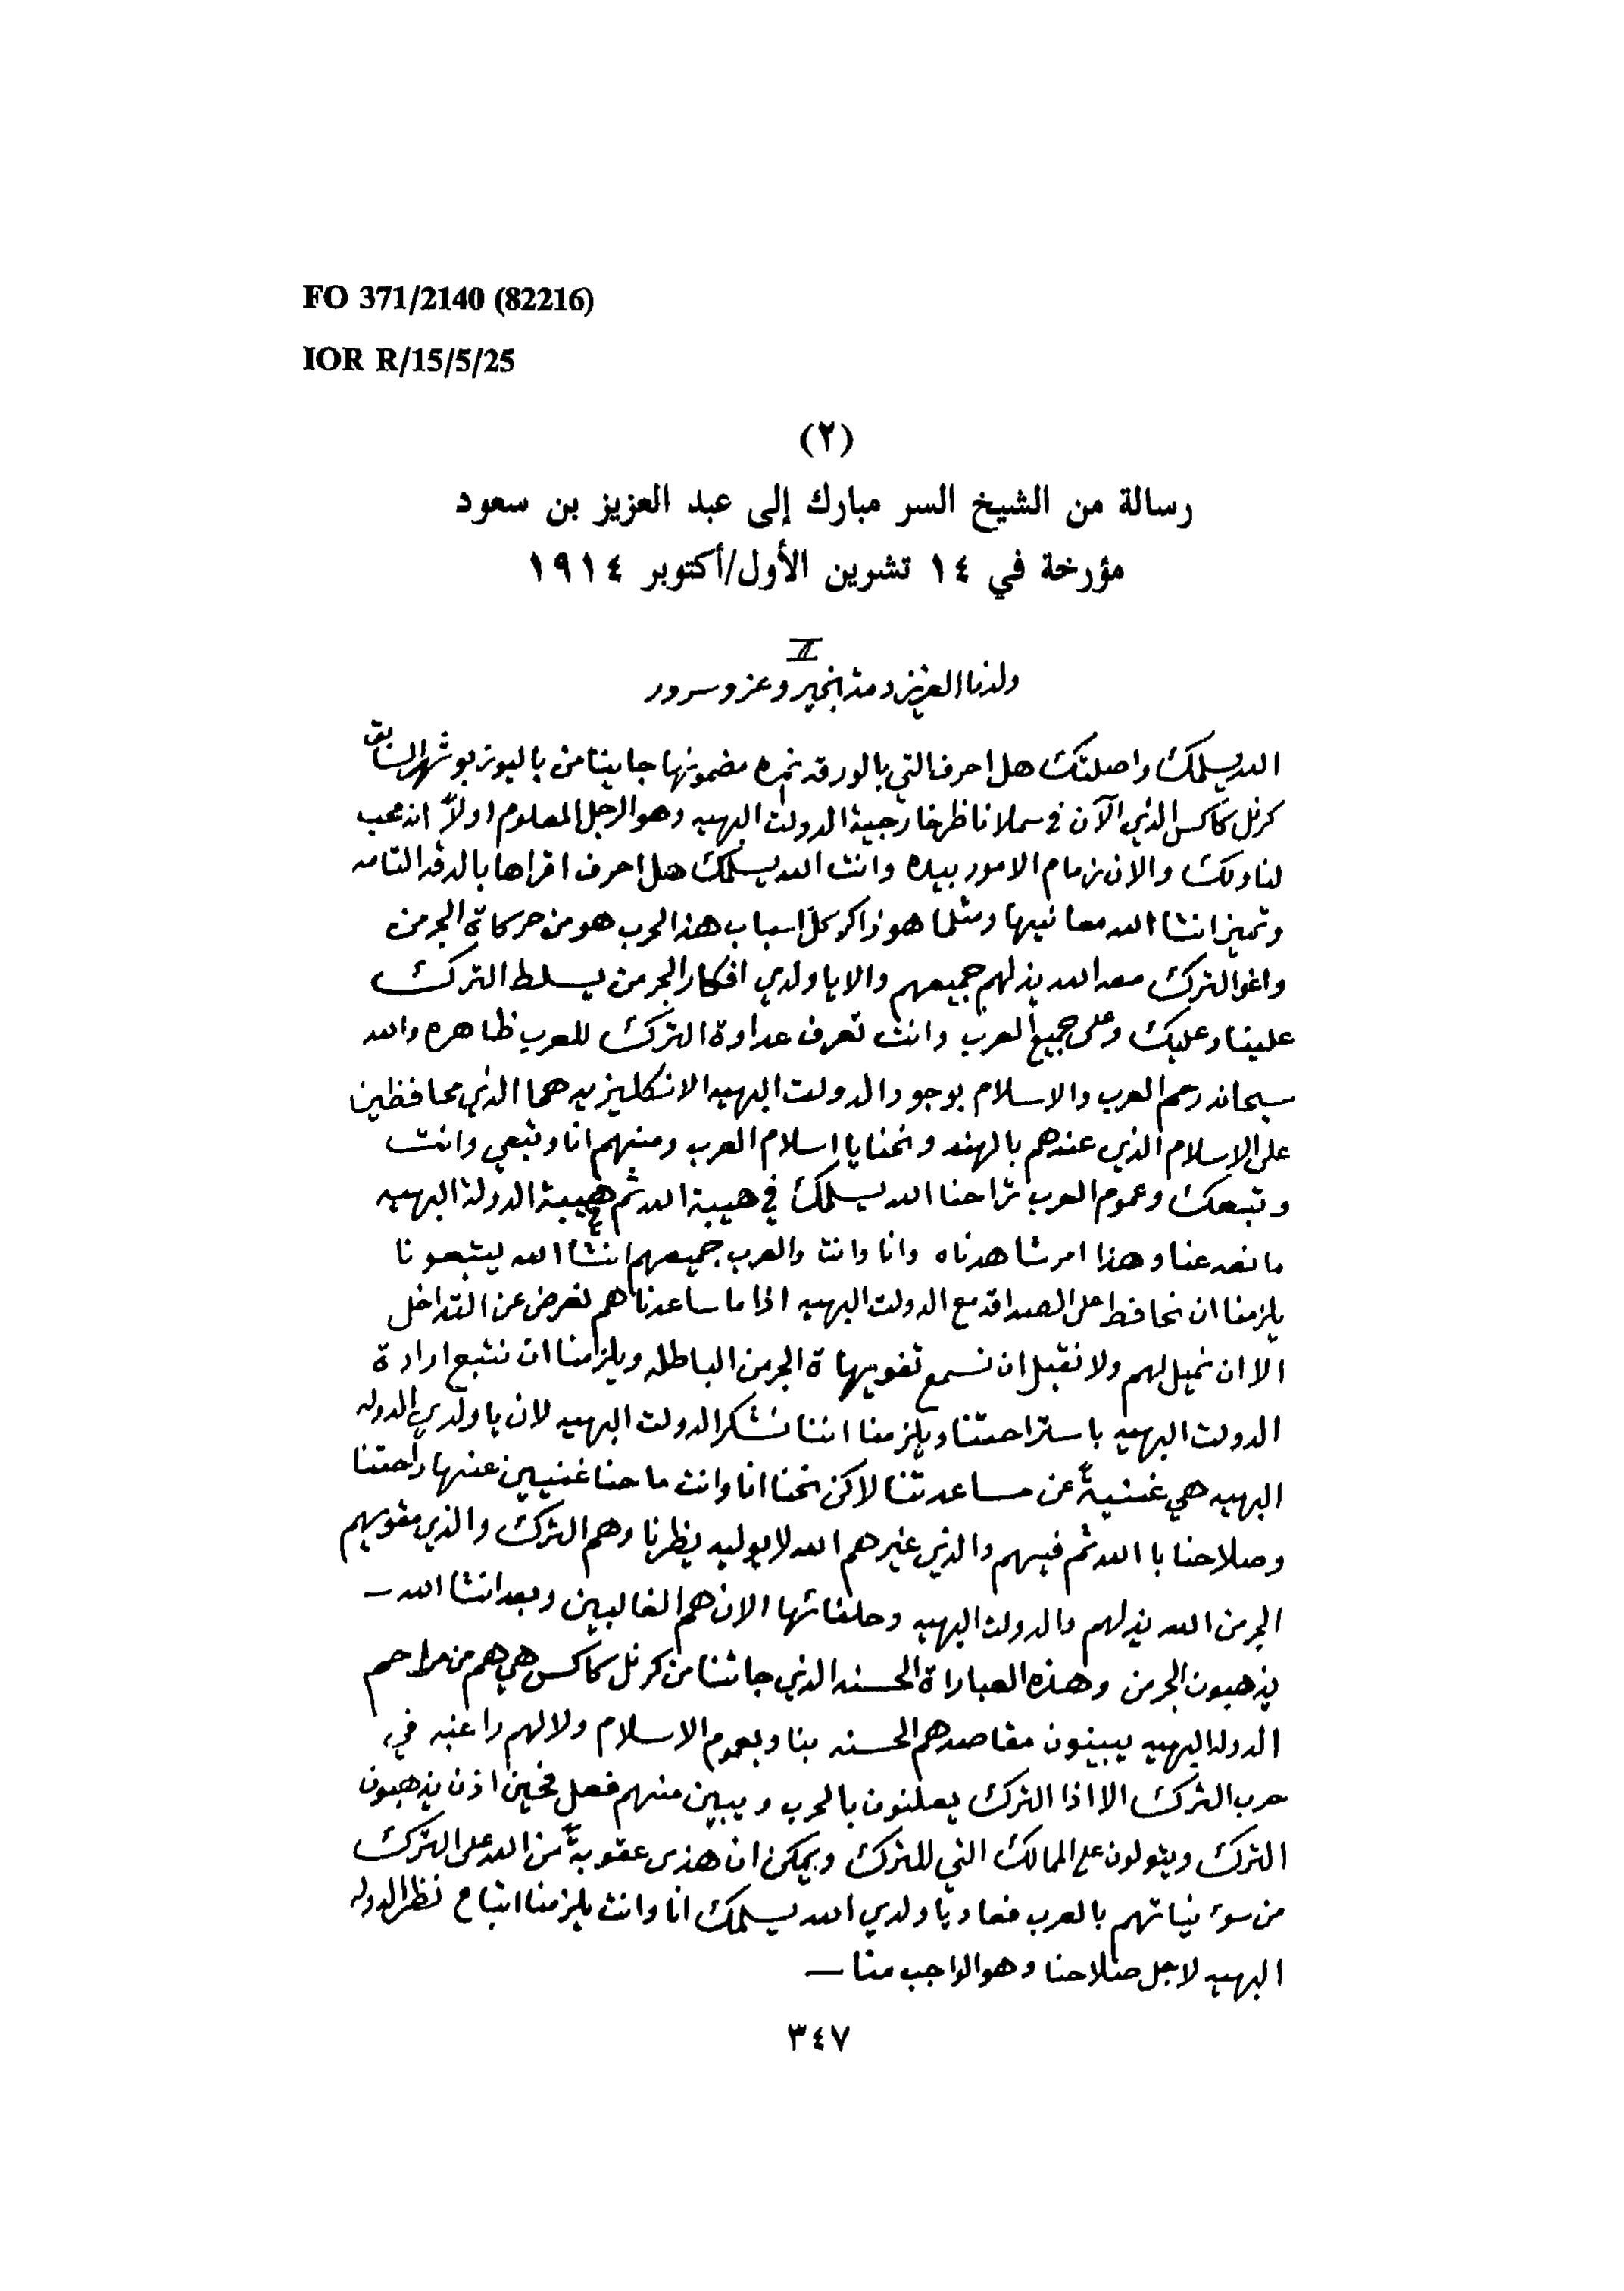 FO 371/2140 (82216)
IOR R/15/5/25
(٢)
رسالة من الشيخ السر مبارك إلى عبد العزيز بن سعود
مؤرخة في ١٤ تشرين الأول/أكتوبر ١٩١٤
II
ولدنا العزيز دمت بخير وعز وسرور
الله يسلمك واصلتك هل احرف التي بالورقه نمره مضمونها جايتنا من باليوز بوشهر السابق
كرنل كاكس الذي الآن في سملا ناظر خارجية الدولت البهيه وهو الرجل المعلوم اولاً انه محب
لنا ولك والان زمام الامور بيده وانت الله يسلمك هل احرف اقراها بالدقه التامه
وتميز انشا الله معانيها ومثلما هو ذاكر كل اسباب هذا الحرب هو من حركاة الجرمن
واغو الترك معه الله يذلهم جميعهم والا يا ولدي افكار الجرمن يسلط الترك
علينا وعليك وعلى جميع العرب وانت تعرف عداوة الترك للعرب ظاهره والله
سبحانه رحم العرب والاسلام بوجود الدولت البهيه الانكليزيه هما الذي محافظين
على الاسلام الذي عندهم بالهند ونحنا يا اسلام العرب ومنهم انا وتبعي وانت
وتبعك وعموم العرب ترا حنا الله يسلمك في هيبة الله ثم هيبة الدولة البهيه
مانعه عنا وهذا امر شاهدناه وانا وانت والعرب جميعهم انشا الله يتبعونا
يلزمنا ان نحافظ على الصداقه مع الدولت البهيه اذا ما ساعدناهم نعرض عن التداخل
الا ان نميل لهم ولا نقبل ان نسمع تغويهاة الجرمن الباطله ويلزمنا ان نتبع ارادة
الدولت البهيه باستراحتنا ويلزمنا اننا نشكر الدولت البهيه لان يا ولدي الدوله
البهيه هي غنيةً عن مساعدتنا لاكن نحنا انا وانت ما حنا غنيين عنها راحتنا
وصلاحنا با الله ثم فيهم والذي غيرهم الله لا يوليه ينظرنا وهم الترك والذي مغويهم
الجرمن الله يذلهم والدولت البهيه وحلفائها الان هم الغالبين وبعد انشا الله —
يذهبون الجرمن وهذه العباراة الحسنه الذي جاتنا من كرنل كاكس هي هم من مراحم
الدوله البهيه يبينون مقاصدهم الحسنه بنا وبعموم الاسلام ولا لهم راغبه في
حرب الترك الا اذا الترك يعلنون بالحرب ويبين منهم فعل فحين اذن يذهبون
الترك ويتولون على الممالك التي للترك ويمكن ان هذى عقوبةً من الله على الترك
من سوء نياتهم بالعرب فعاد يا ولدي الله يسلمك انا وانت يلزمنا اتباع نظر الدوله
البهيه لاجل صلاحنا وهو الواجب منا —
٣٤٧